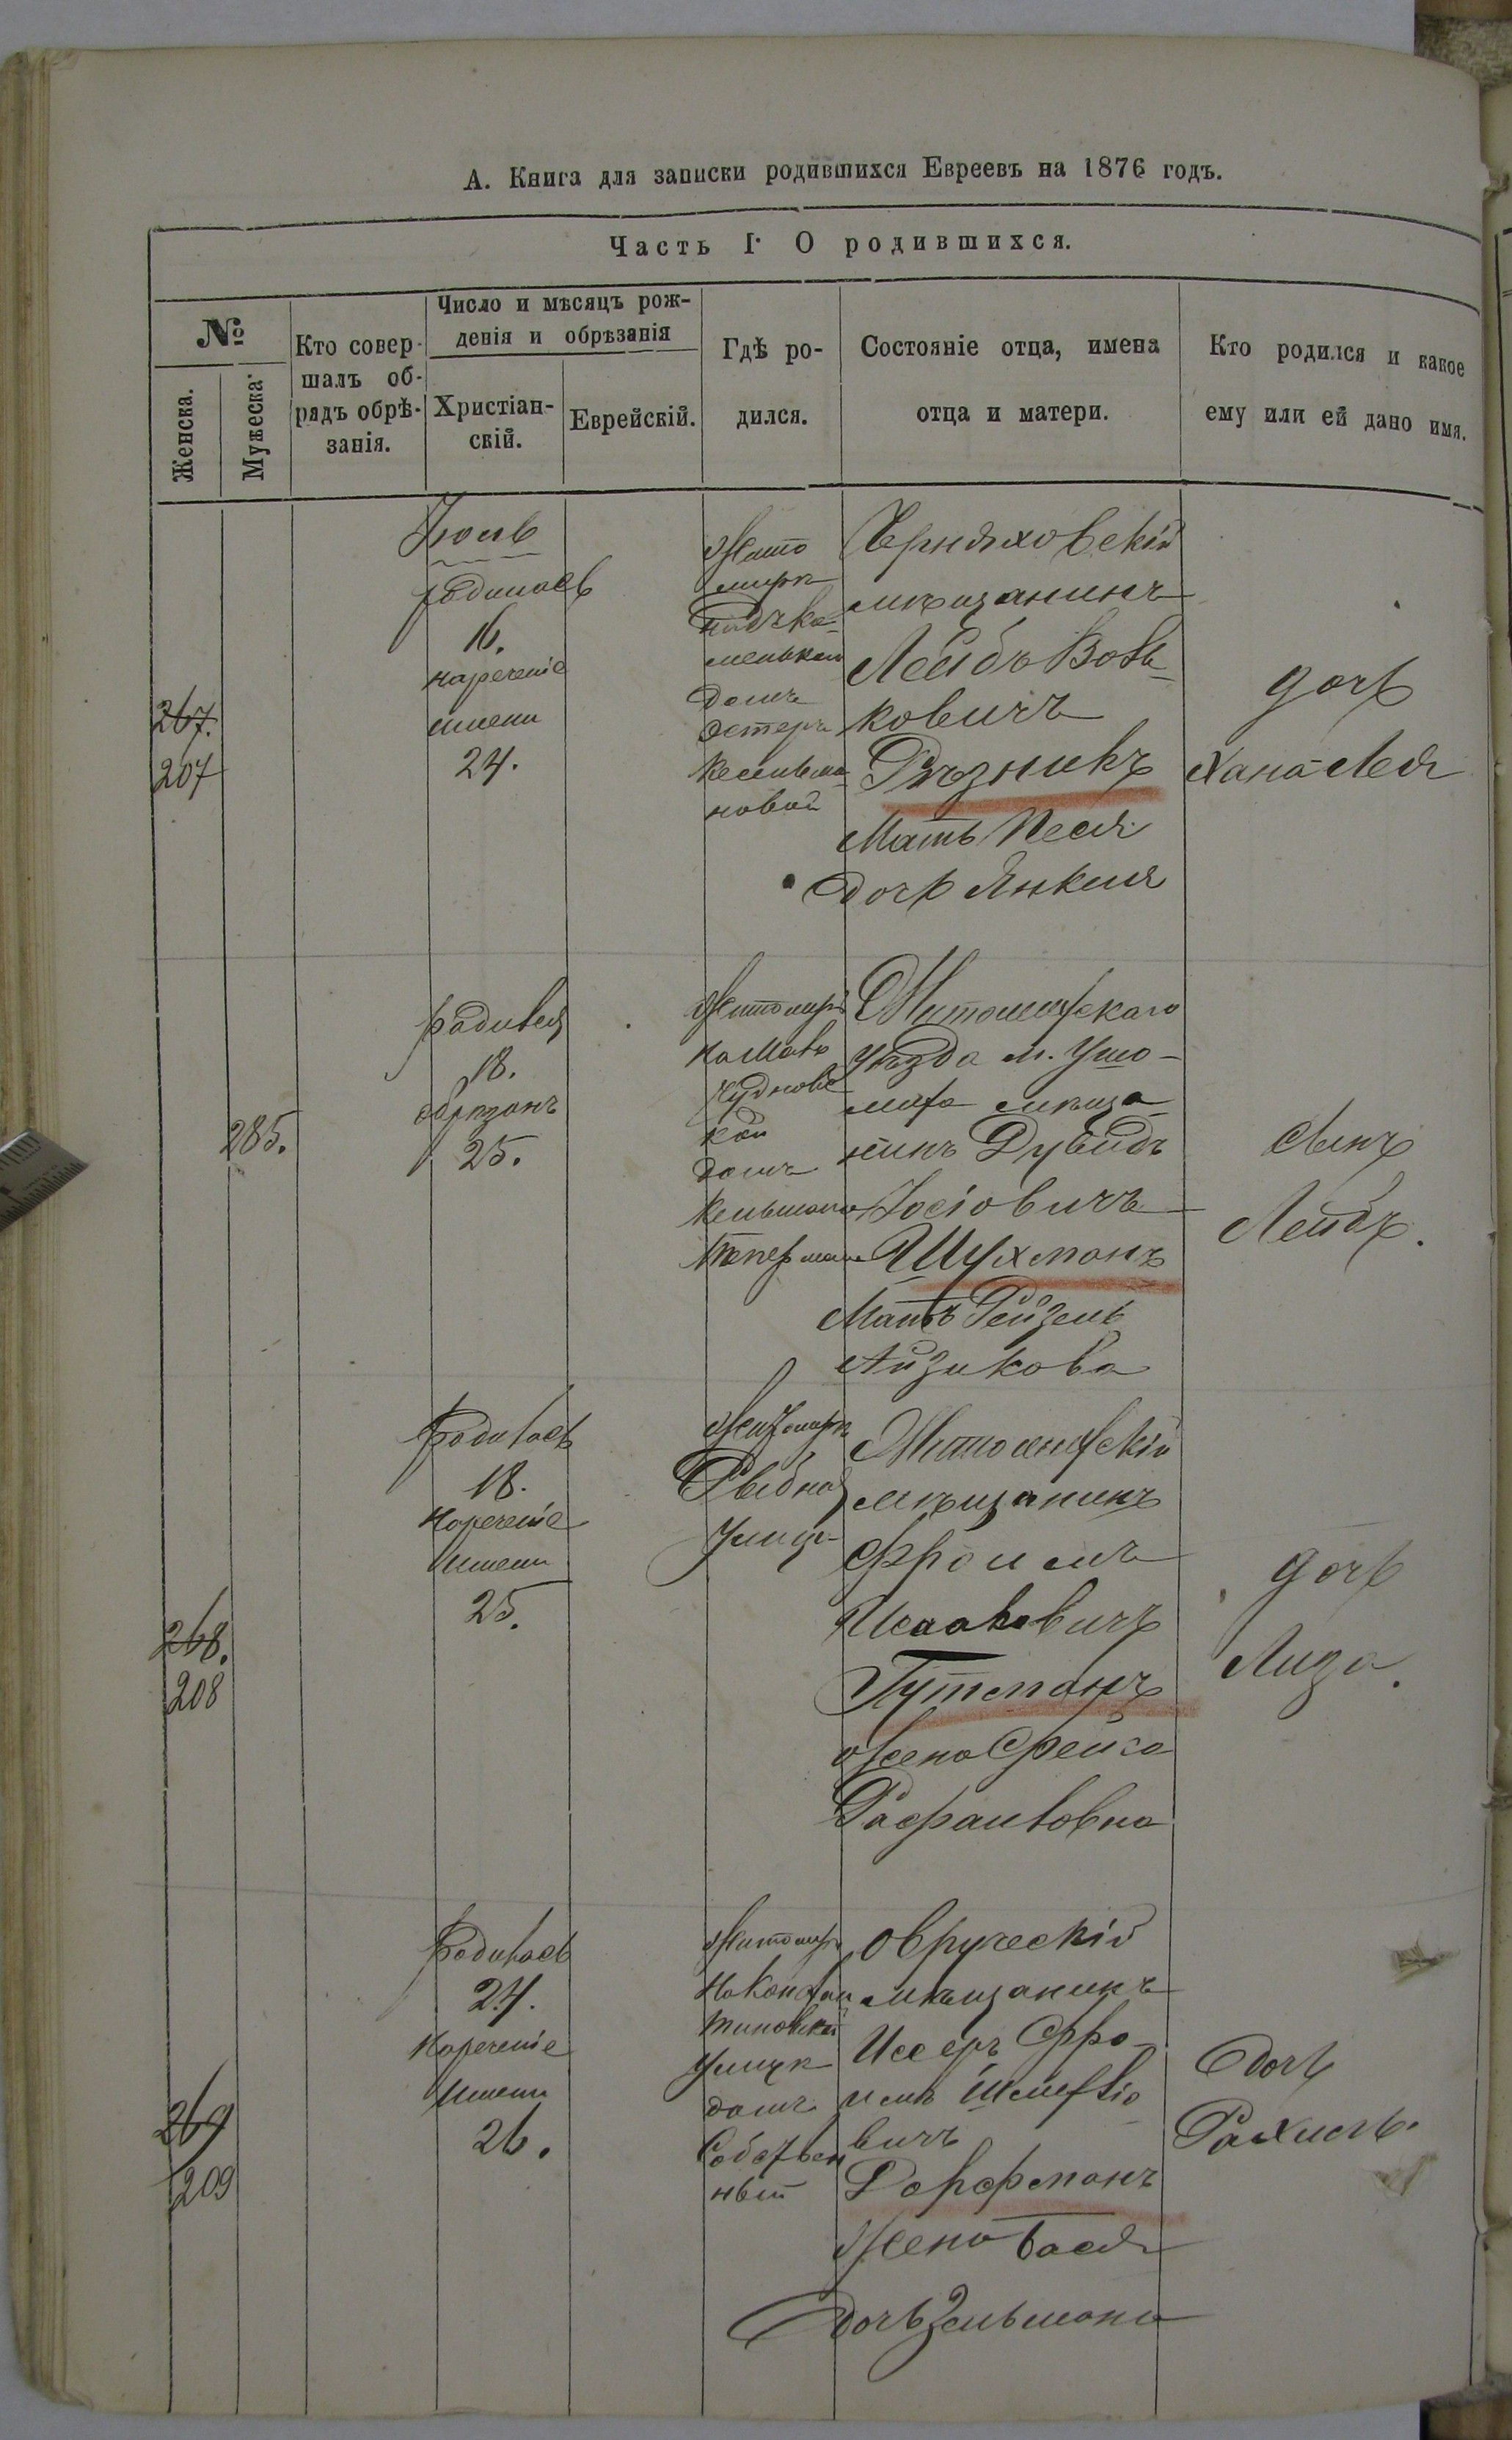 А. Книга для записки родившихся Евреевъ на 1876 годъ.
Часть I. О родившихся.
№
Женска.
Мужеска.
Кто совер-
шалъ об-
рядъ обрѣ-
занія.
Число и мѣсяцъ рож-
денія и обрѣзанія
Христіан-
скій.
Еврейскій.
Гдѣ ро-
дился.
Состояніе отца, имена
отца и матери.
Кто родился и какое
ему или ей дано имя.
267.
207
Іюль
родилась
16.
нареченіе
имени
24.
Жито
мирѣ
домъ
Эстеръ
новой
Черняховскій
мѣщанинъ
Лейбъ Вовь-
ковичъ
Рѣзникъ
Мать Песя
дочь Янкеля
дочь
Хана-Лея
285.
родился
18.
обрѣзанъ
25.
Житомиръ
на Мало
Чудновс
кой
домъ
Житомирскаго
уѣзда м. Ушо-
мира мѣща-
нинъ Дувидъ
Іосіовичъ
Шухманъ
Мать Рейзель
Айзикова
сынъ
Лейбъ.
268.
208
родилась
18.
Нареченіе
Имени
25.
Житомирѣ
Рыбная
улица
Житомирскій
мѣщанинъ
Фроимъ
Исааковичъ
Гутманъ
Жена Фейга
Рафаиловна
дочь
Лиза.
269
209
родилась
24.
Нареченіе
Имени
26.
Житомиръ
на Констан
тиновской
улицѣ
домъ
Собствен
ный
Овручскій
мѣщанинъ
Иссеръ Фро-
имъ Шмеріо
вичъ
Дорфманъ
Жена Бася
дочь Зельмана
дочь
Рахиль.